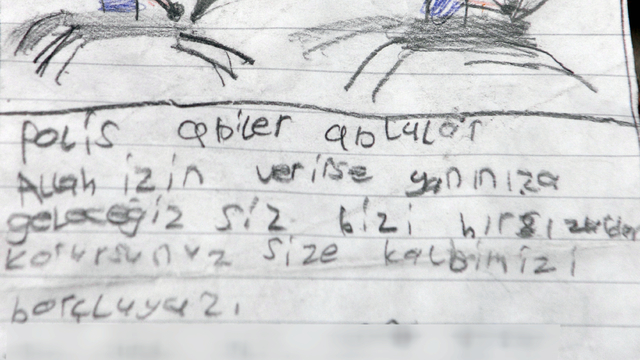 polis abiler ablalar
Allah izin verirse yanınıza
geleceğiz siz bizi hırsızdan
korursunuz size kalbimizi
borçluyazı